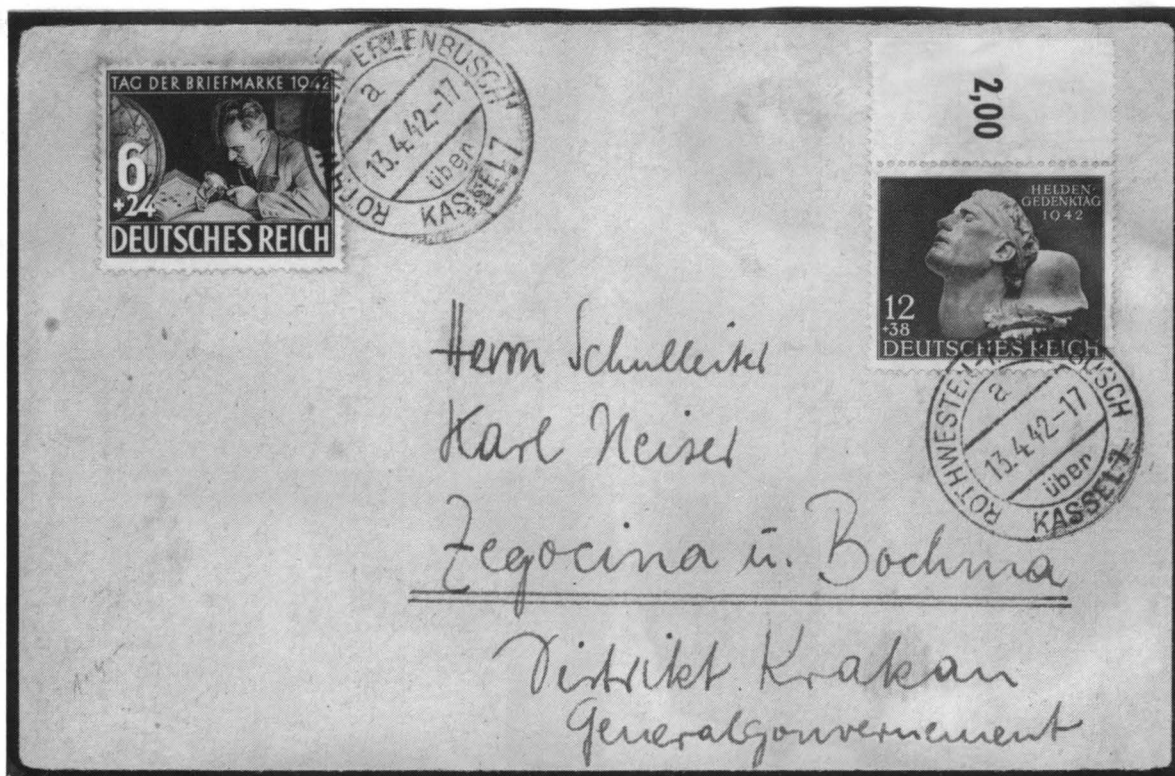 TAG DER BRIEFMARKE 1942
6
+24
DEUTSCHES REICH
ERLENBUSCH
a
13.4.42.-17
über
ROTHW
KASSEL 7
2,00
HELDEN-
GEDENKTAG
1942
12
+38
DEUTSCHES REICH
ROTHWESTEN
BUSCH
a
13.4.42-17
über
KASSEL 7
Herrn Schulleiter
Karl Neiser
Zegocina ü. Bochnia
Distrikt Krakau
Generalgouvernement